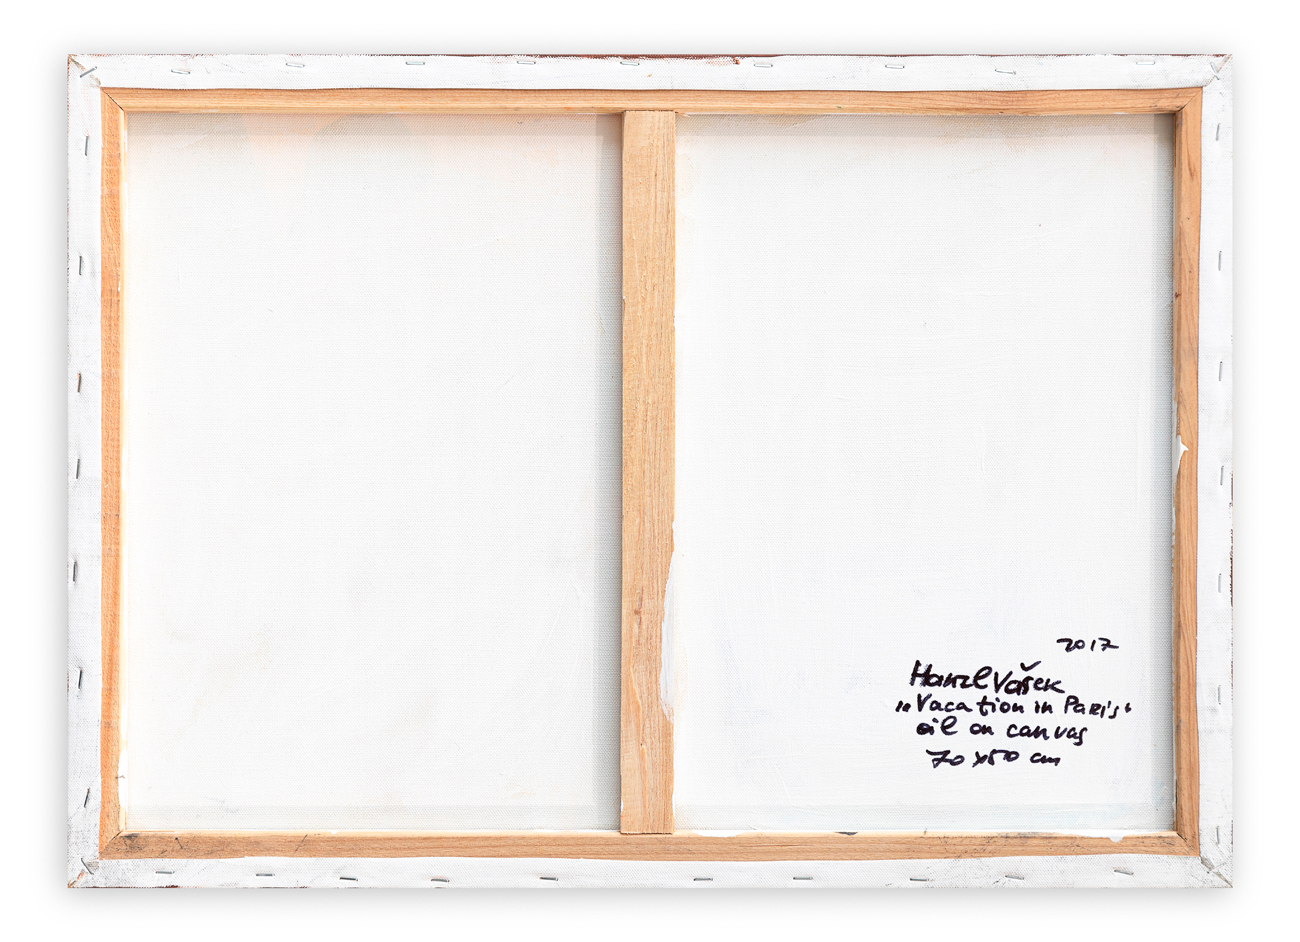 2017
Hanzl Vašek
„Vacation in Paris“
oil on canvas
70 x 50 cm